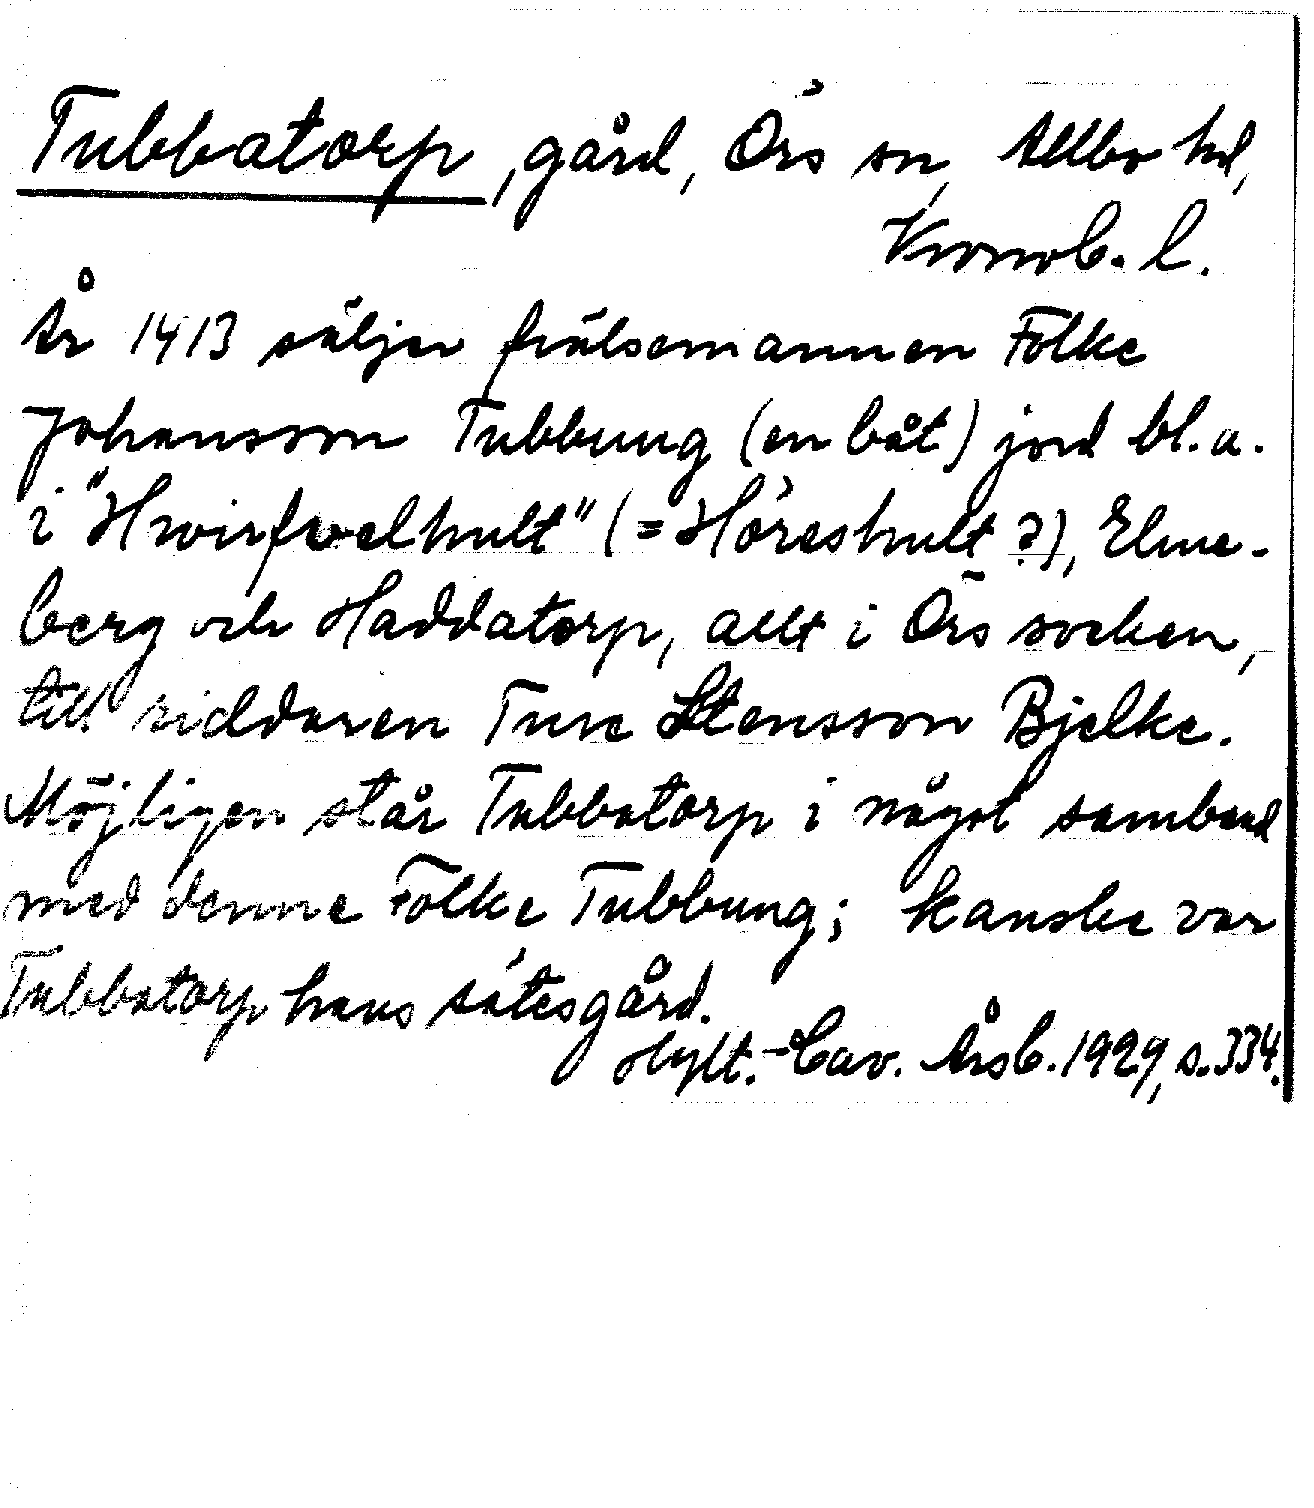 Tubbatorp, gård, Örs sn, Allbo hd,
Kronob. l.
År 1413 säljer frälsemannen Folke
Johansson Tubbung (en båt) jord bl. a.
i "Hwirfwelhult" (= Höreshult ?), Elme-
berg och Haddatorp, allt i Örs socken,
till riddaren Ture Stensson Bjelke.
Möjligen står Tubbatorp i något samband
med denne Folke Tubbung; kanske var
Tubbatorp hans sätesgård.
Hylt.-Cav. Årsb. 1929, s. 334.